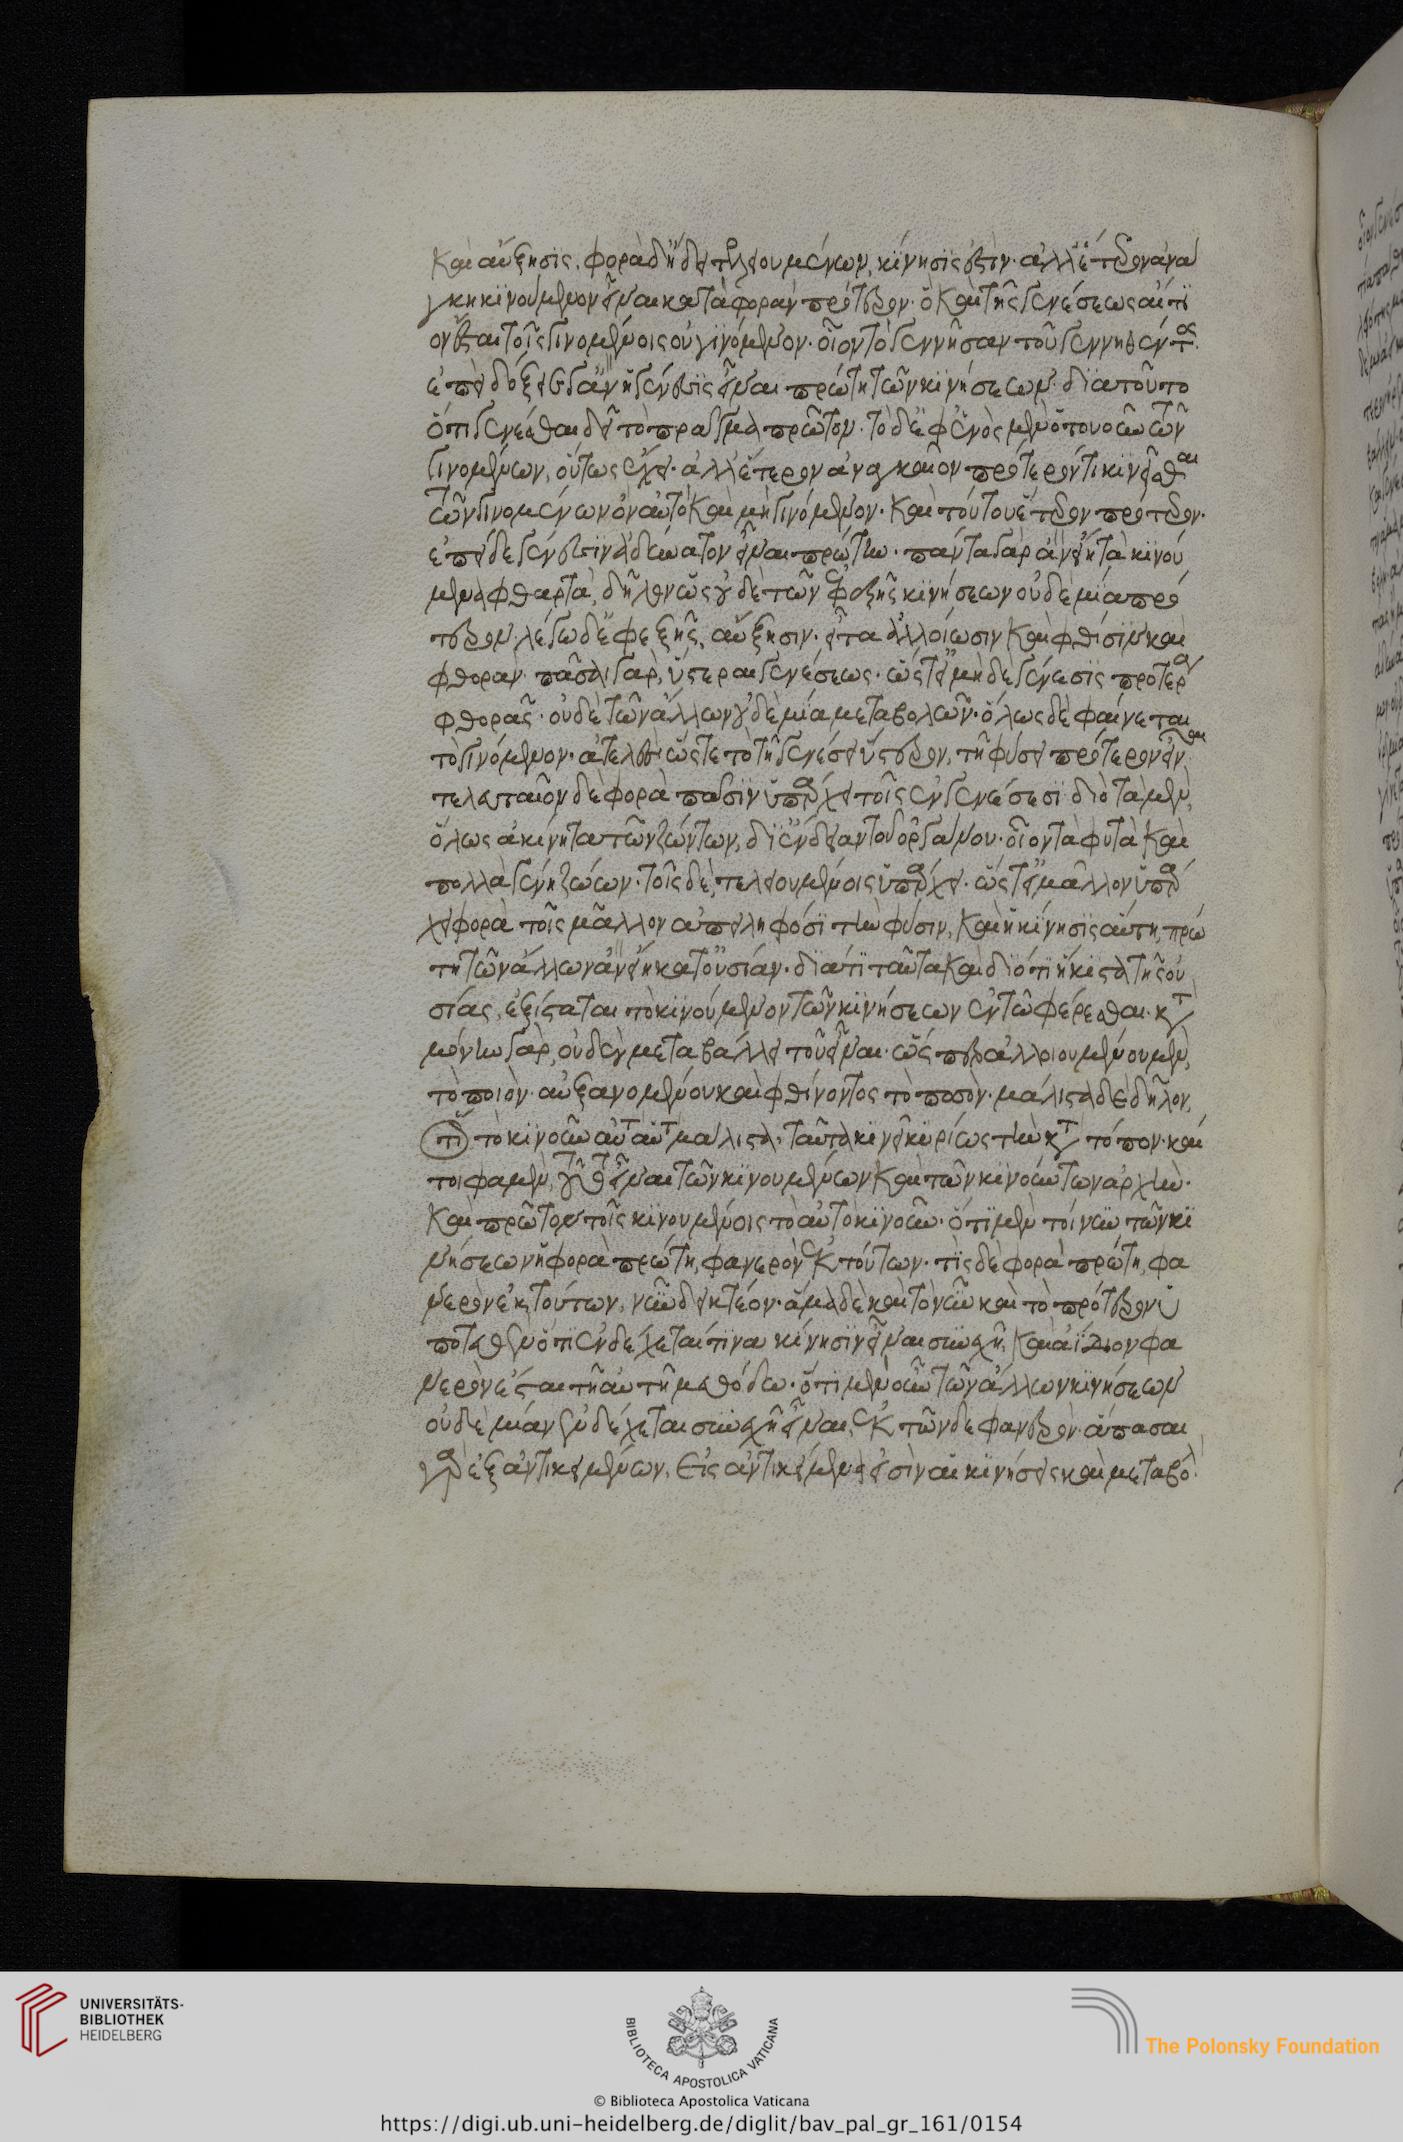 καὶ αὔξησϊς, φορὰ δ' ἤδη τελειουμένων, κίνησϊς ἐστϊν· ἀλλ' ἕτερον ἀνά
γκη κϊνούμενον εἶναι κατὰ φορὰν πρότερον· ὃ καὶ τῆς γενέσεως αἴτϊ
ον ἔσται τοῖς γινομένοις οὐ γϊνόμενον· οἷον τὸ γεννῆσαν τοῦ γεννηθέντος·
ἐπεὶ δόξειε γ' ἂν ἡ γένεσϊς εἶναι πρώτη τῶν κϊνήσεων· δϊατοῦτο
ὅτι γενέσθαι δεῖ τὸ πραγμα πρῶτον· τὸ δ' ἐφ ἑνὸς μὲν ὁτουοῦν τῶν
γινομένων, οὕτως ἔχει· ἀλλ' ἕτερον ἀναγκαῖον πρότερόν τι κϊνεῖσθαι
τῶν γινομένων ὂν αὐτὸ καὶ μὴ γινόμενον· καὶ τούτου ἕτερον πρότερον·
ἐπεὶ δὲ γένεσιν ἀδύνατον εἶναι πρώτην· πάντα γὰρ ἂν εἴη τὰ κϊνού
μενα φθαρτὰ, δῆλον ὡς οὐδὲ τῶν ἐφεξῆς κϊνήσεων οὐδὲ μϊα προ
τερον· λέγω δ' ἐφεξῆς, αὔξησιν· εἶτα ἀλλοίωσιν καὶ φθίσϊν καὶ
φθοράν· πᾶσαι γαρ, ὕστεραι γενέσεως· ὥστ' εἰ μὴ δὲ γένεσϊς προτέρα
φθορᾶς· οὐδὲ τῶν ἄλλων οὐδὲ μία μεταβολῶν· ὅλως δὲ φαίνεται
τὸ γινόμενον· ἀτελὲς· ὥστε τὸ τῆ γενέσει ὕστερον, τῆ φύσει πρότερον εἶναι
τελευταῖον δὲ φορὰ πασϊν ὑπάρχει τοῖς ἐν γενέσεσϊ· διὸ τὰ μὲν,
ὅλως ἀκίνητα τῶν ζώντων, δϊ' ἔνδειαν τοῦ ὀργάνου· οἷον τὰ φυτὰ καὶ
πολλὰ γένη ζώων· τοῖς δὲ, τελειουμένοις ὑπάρχει· ὥστ' εἰ μᾶλλον ὑπάρ
χει φορὰ τοῖς μᾶλλον ἀπειληφόσϊ τὴν φύσιν, καὶ ἡ κίνησϊς αὕτη, πρώ
τη τῶν ἄλλων ἂν εἴη κατ' οὐσίαν· δϊάτϊ ταῦτα καὶ δϊότϊ ἥκιστα τῆς οὐ
σίας, ἐξίσταται τὸ κϊνούμενον τῶν κϊνήσεων ἐν τῶ φέρεσθαι· κατὰ
μόνην γὰρ, οὐδὲν μεταβάλλει τοῦ εἶναι· ὥσπερ ἀλλοιουμένου μὲν,
τὸ ποιὸν· αὐξανομένου καὶ φθίνοντος τὸ ποσὸν· μάλιστα δὲ δῆλον,
ὅτι τὸ κϊνοῦν αὐτὸ αὑτὸ μάλιστα, ταύτην κινεῖ κυρίως τὴν κατὰ τόπον· καί
τοι φαμὲν, τοῦτ' εἶναι τῶν κϊνουμένων καὶ τῶν κϊνούντων ἀρχὴν·
καὶ πρῶτον τοῖς κϊνουμένοις τὸ αὐτὸ κϊνοῦν· ὅτϊ μὲν τοίνυν τῶν κϊ
νήσεων ἡ φορὰ πρώτη, φανερὸν ἐκ τούτων· τὶς δὲ φορὰ πρώτη, φα
νερὸν ἐκ τούτων, νῦν δεικτέον· ἅμα δὲ καὶ τὸ νῦν καὶ τὸ πρότερον ὑ
ποτεθὲν ὅτϊ ἐνδέχεταί τϊνα κίνησϊν εἶναι συνεχῆ, καὶ ἀΐδϊον φα
νερὸν ἔσται τῆ αὐτῆ μεθόδω· ὅτϊ μὲν οὖν τῶν ἄλλων κϊνήσεων
οὐδὲ μίαν ἐνδέχεται συνεχῆ εἶναι, ἐκ τῶν δε φανερὸν· ἅπασαι
γὰρ ἐξ ἀντικειμένων, εἰς ἀντικείμενά εἰσὶν αἱ κϊνήσεις καὶ μεταβο
UNIVERSITÄTS-
BIBLIOTHEK
HEIDELBERG
BIBLIOTECA APOSTOLICA VATICANA
The Polonsky Foundation
© Biblioteca Apostolica Vaticana
https://digi.ub.uni-heidelberg.de/diglit/bav_pal_gr_161/0154